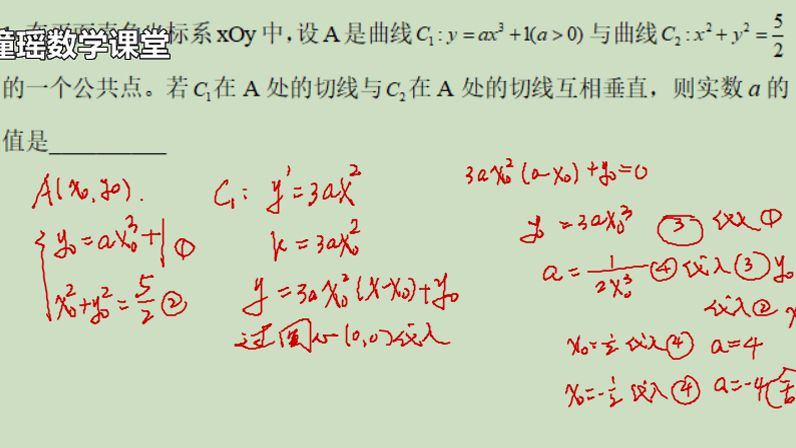 童瑶数学课堂
在平面直角坐标系xOy中,设A是曲线C₁:y=ax³+1(a>0)与曲线C₂:x²+y²=5/2
的一个公共点。若C₁在A处的切线与C₂在A处的切线互相垂直,则实数a的
值是__________
A(x₀,y₀).
{y₀=ax₀³+1 ①
x₀²+y₀²=5/2 ②
C₁: y'=3ax²
k=3ax₀²
y=3ax₀²(x-x₀)+y₀
过圆心(0,0)代入
3ax₀²(a-x₀)+y₀=0
y₀=3ax₀³ ③ 代入①
a=1/2x₀³ ④代入③y₀
代入②x
x₀=1/2代入④ a=4
x₀=-1/2代入④ a=-4(舍